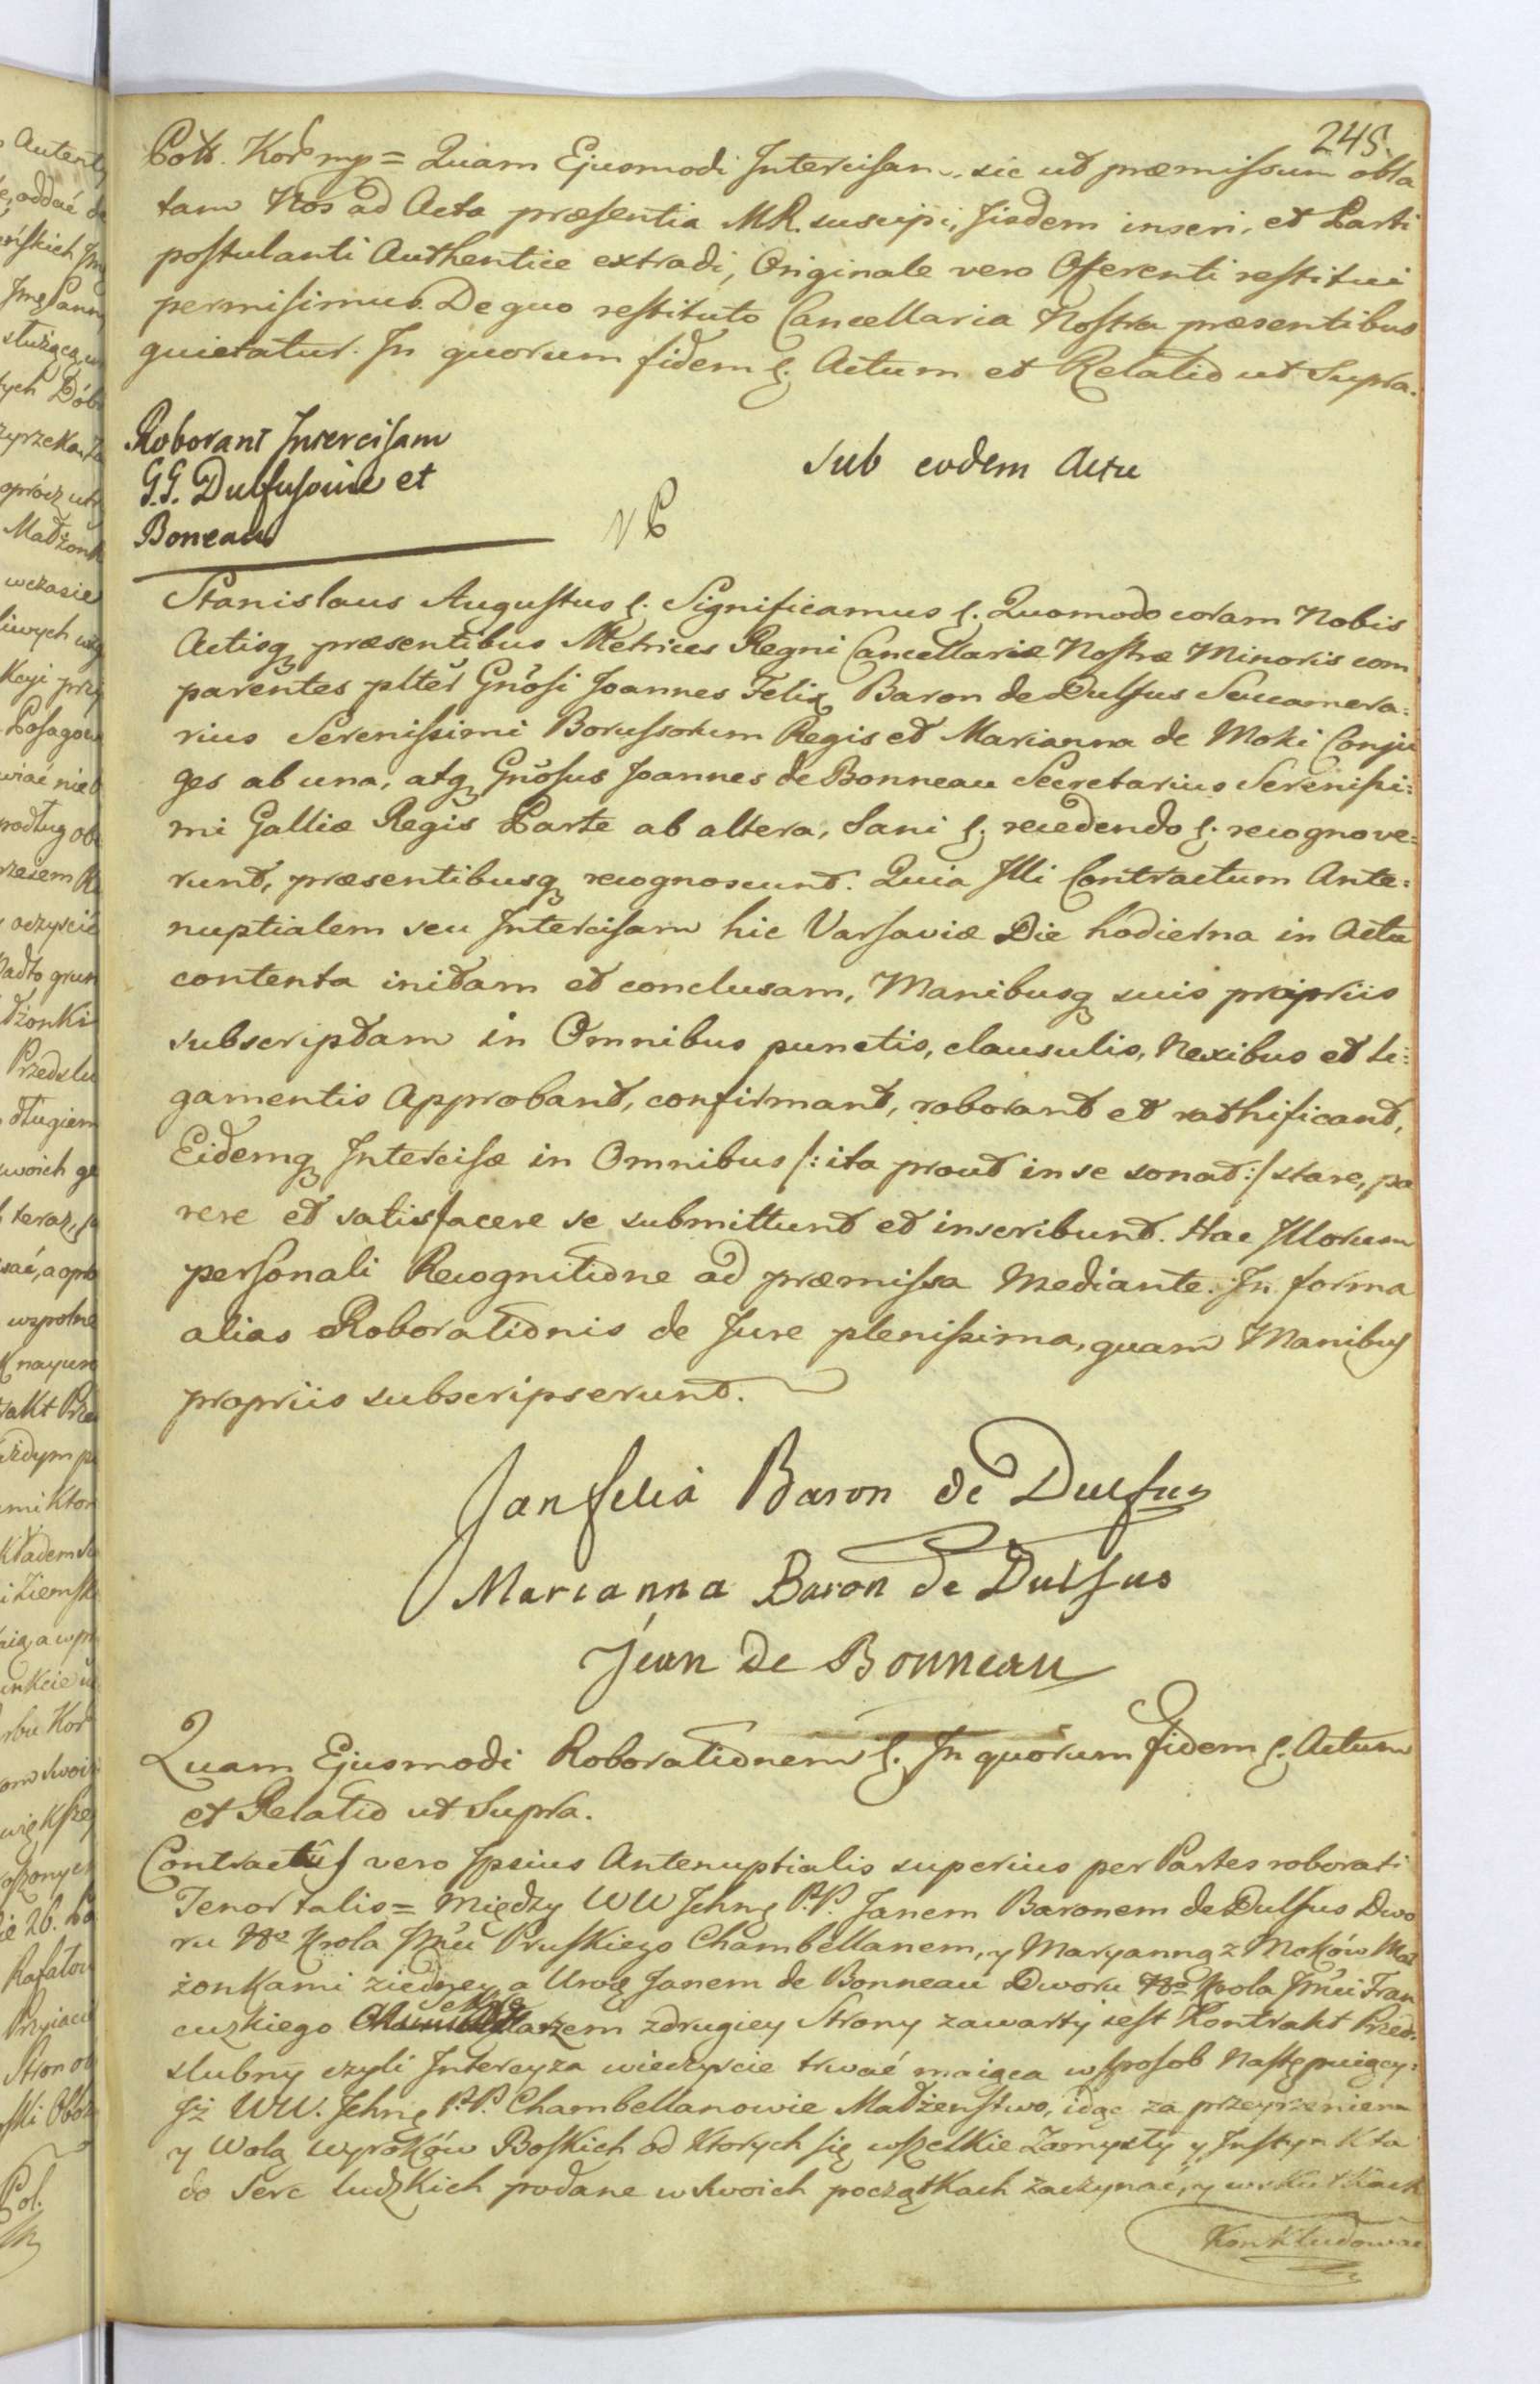 245.
Quam Ejusmodi Intercisam sic ut præmissum obla
tam Nos ad Acta præsentia MR. suscipi, Iisdem inseri, et Parti
postulanti Authentice extradi, Originale vero Offerenti restitui
permisimus. De quo restituto Cancellaria Nostra præsentibus
quietatur. In quorum fidem &. Actum et Relatio ut Supra.
Roborant Intercisam
G.G. Dulfusowie et
Boneau
Sub eodem Actu
Stanislaus Augustus &. Significamus &. Quomodo coram Nobis
Actisq præsentibus Metrices Regni Cancellariæ Nostræ Minoris com
parentes plter Gnosi Joannes Felix Baron de Dulfus Succamera:
rius Serenissimi Borussorum Regis et Marianna de Moki Conju
ges ab una, atq Gnosus Joannes de Bonneau Secretarius Serenissi:
mi Galliæ Regis Parte ab altera, Sani &. recedendo &. recognove:
runt, præsentibusq recognoscunt. Quia Illi Contractum Ante:
nuptialem seu Intercisam hic Varsaviæ Die hodierna in Actu
contenta initam et conclusam, Manibusq suis propriis
subscriptam in Omnibus punctis, clausulis, Nexibus et Li:
gamentis Approbant, confirmant, roborant et rathificant,
Eidemq Intercisæ in Omnibus /: ita prout in se sonat :/ stare, pa
rere et satisfacere se submittunt et inscribunt. Hac Illorum
personali Recognitione ad præmissa Mediante. In forma
alias Roborationis de Jure plenissima, quam Manibus
propriis subscripserunt.
Jan felix Baron de Dulfus
Marianna Baron de Dulfus
Jean de Bonneau
Quam Ejusmodi Roborationem &. In quorum fidem &. Actum
et Relatio ut Supra.
Contractus vero Ipsius Antenuptialis superius per Partes roborati
Tenor talis = Między WW Ichmę P.P. Janem Baronem de Dulfus Dwo
ru Krola Jmci Pruskiego Chambellanem, y Maryanną z Moków Mał
żonkami ziedney a Urog Janem de Bonneau Dworu Krola Jmci Fran
cuzkiego zdrugiey Strony zawarty iest Kontrakt Przed.
slubny czyli Intercyza wieczyscie trwać maiąca w sposob Następuiący:
Iż WW. Ichmę P.P. Chambellanowie Małżenstwo, idąc za przeyrzeniem
y Wolą wyroków Boskich od ktorych się wszelkie Zamysły y Instynkta
do Serc ludzkich podane w swoich początkach zaczynać, y w skutkach
Konkludować